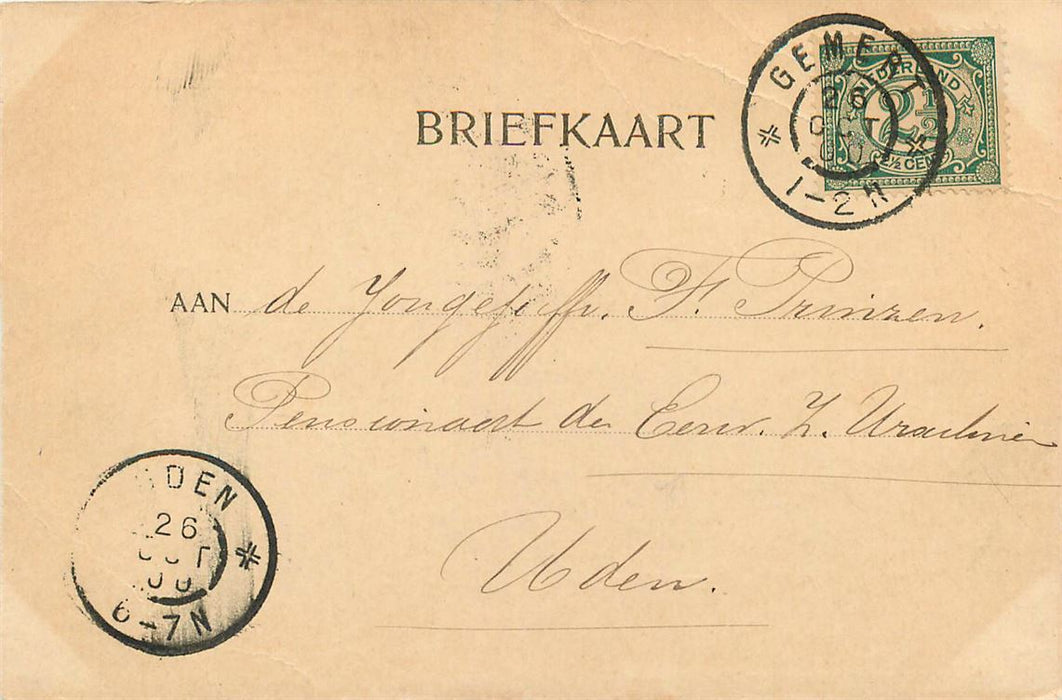 BRIEFKAART
GEMERT
26
OCT
00
1-2 N
NEDERLAND
2 1/2
2½ CENT
AAN de Jongejuffr. F. Prinzen.
Pensionaat der Eerw. Z. Ursulinen
Uden.
UDEN
26
OCT
00
6-7N